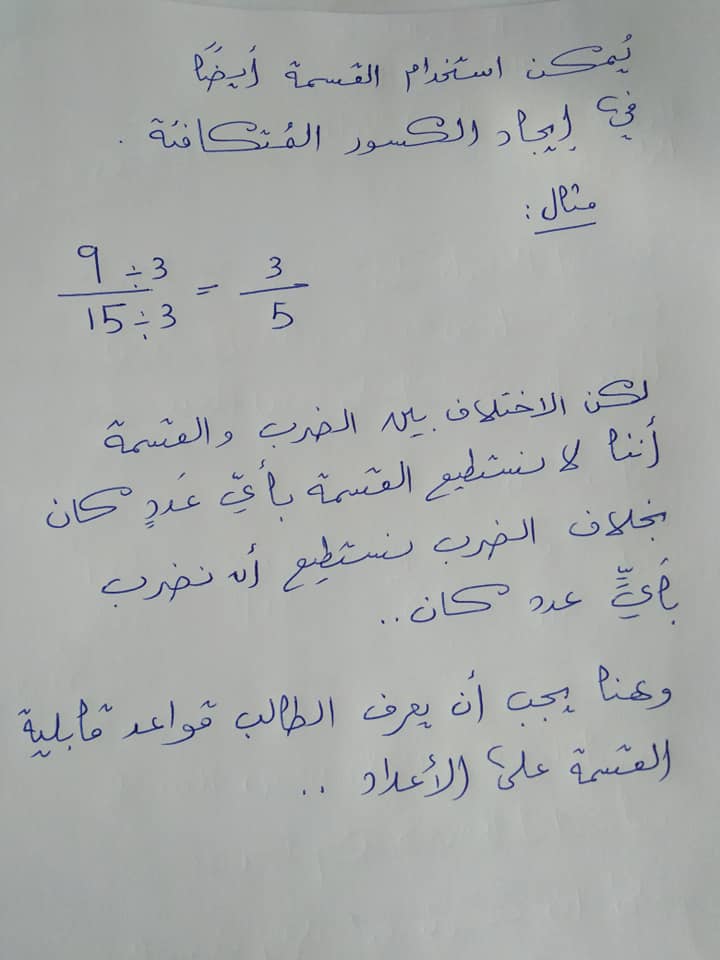 يُمكن استخدام القسمة أيضًا
في إيجاد الكسور المُتكافئة .
مثال :
9 ÷3 / 15÷3 = 3 / 5
لكن الاختلاف بين الضرب والقسمة
أننا لا نستطيع القسمة بأيّ عَددٍ كان
بخلاف الضرب نستطيع أن نضرب
بأيٍّ عدد كان..
وهنا يجب أن يعرف الطالب قواعد قابلية
القسمة على الأعداد ..